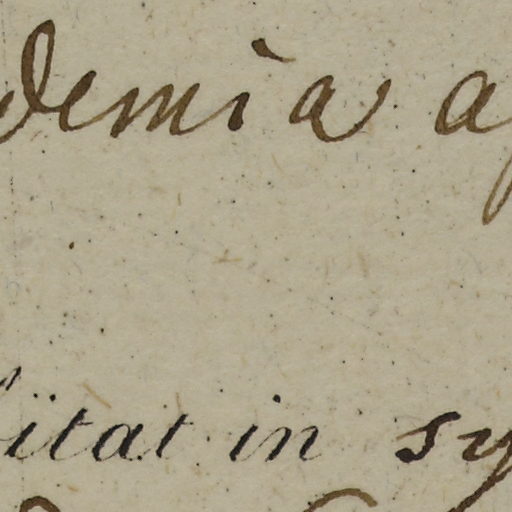 demia a
itat in sy